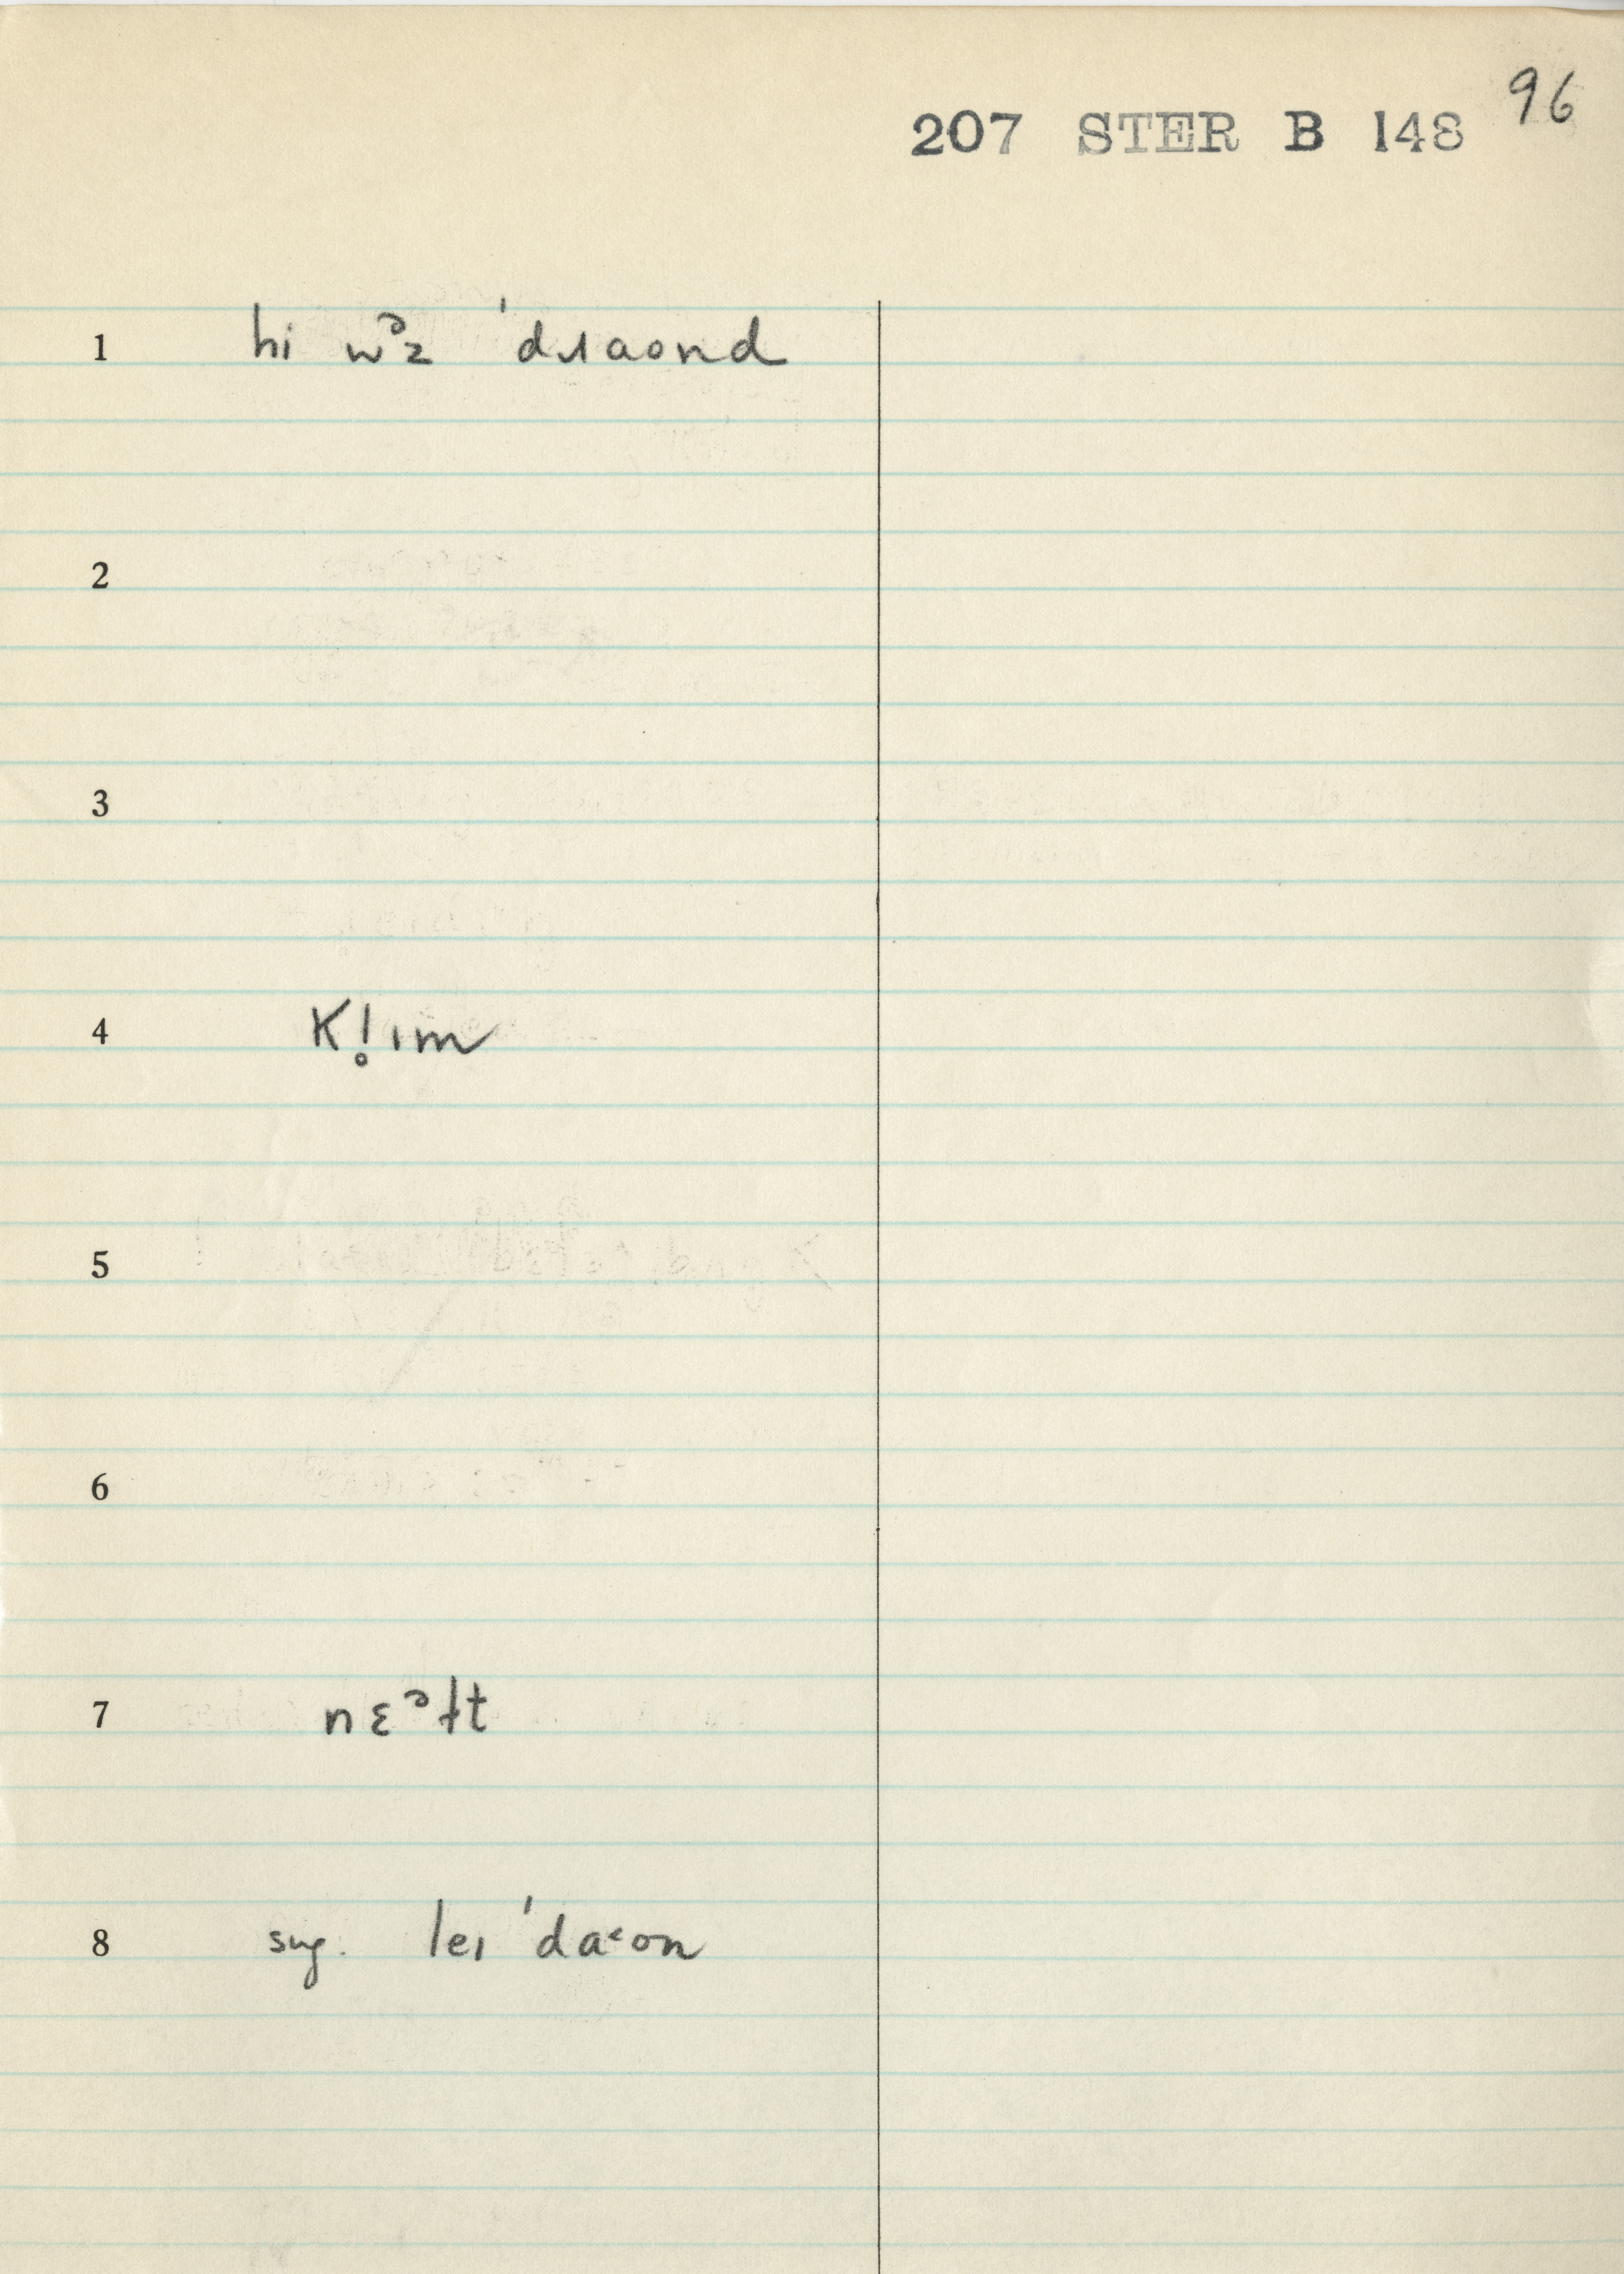 96
207 STER B 148
1 hi wᵊz ˈdɹaond
2
3
4 K!̥ım
5
6
7 nɛᵊɫt
8 sug. leı ˈda˂on